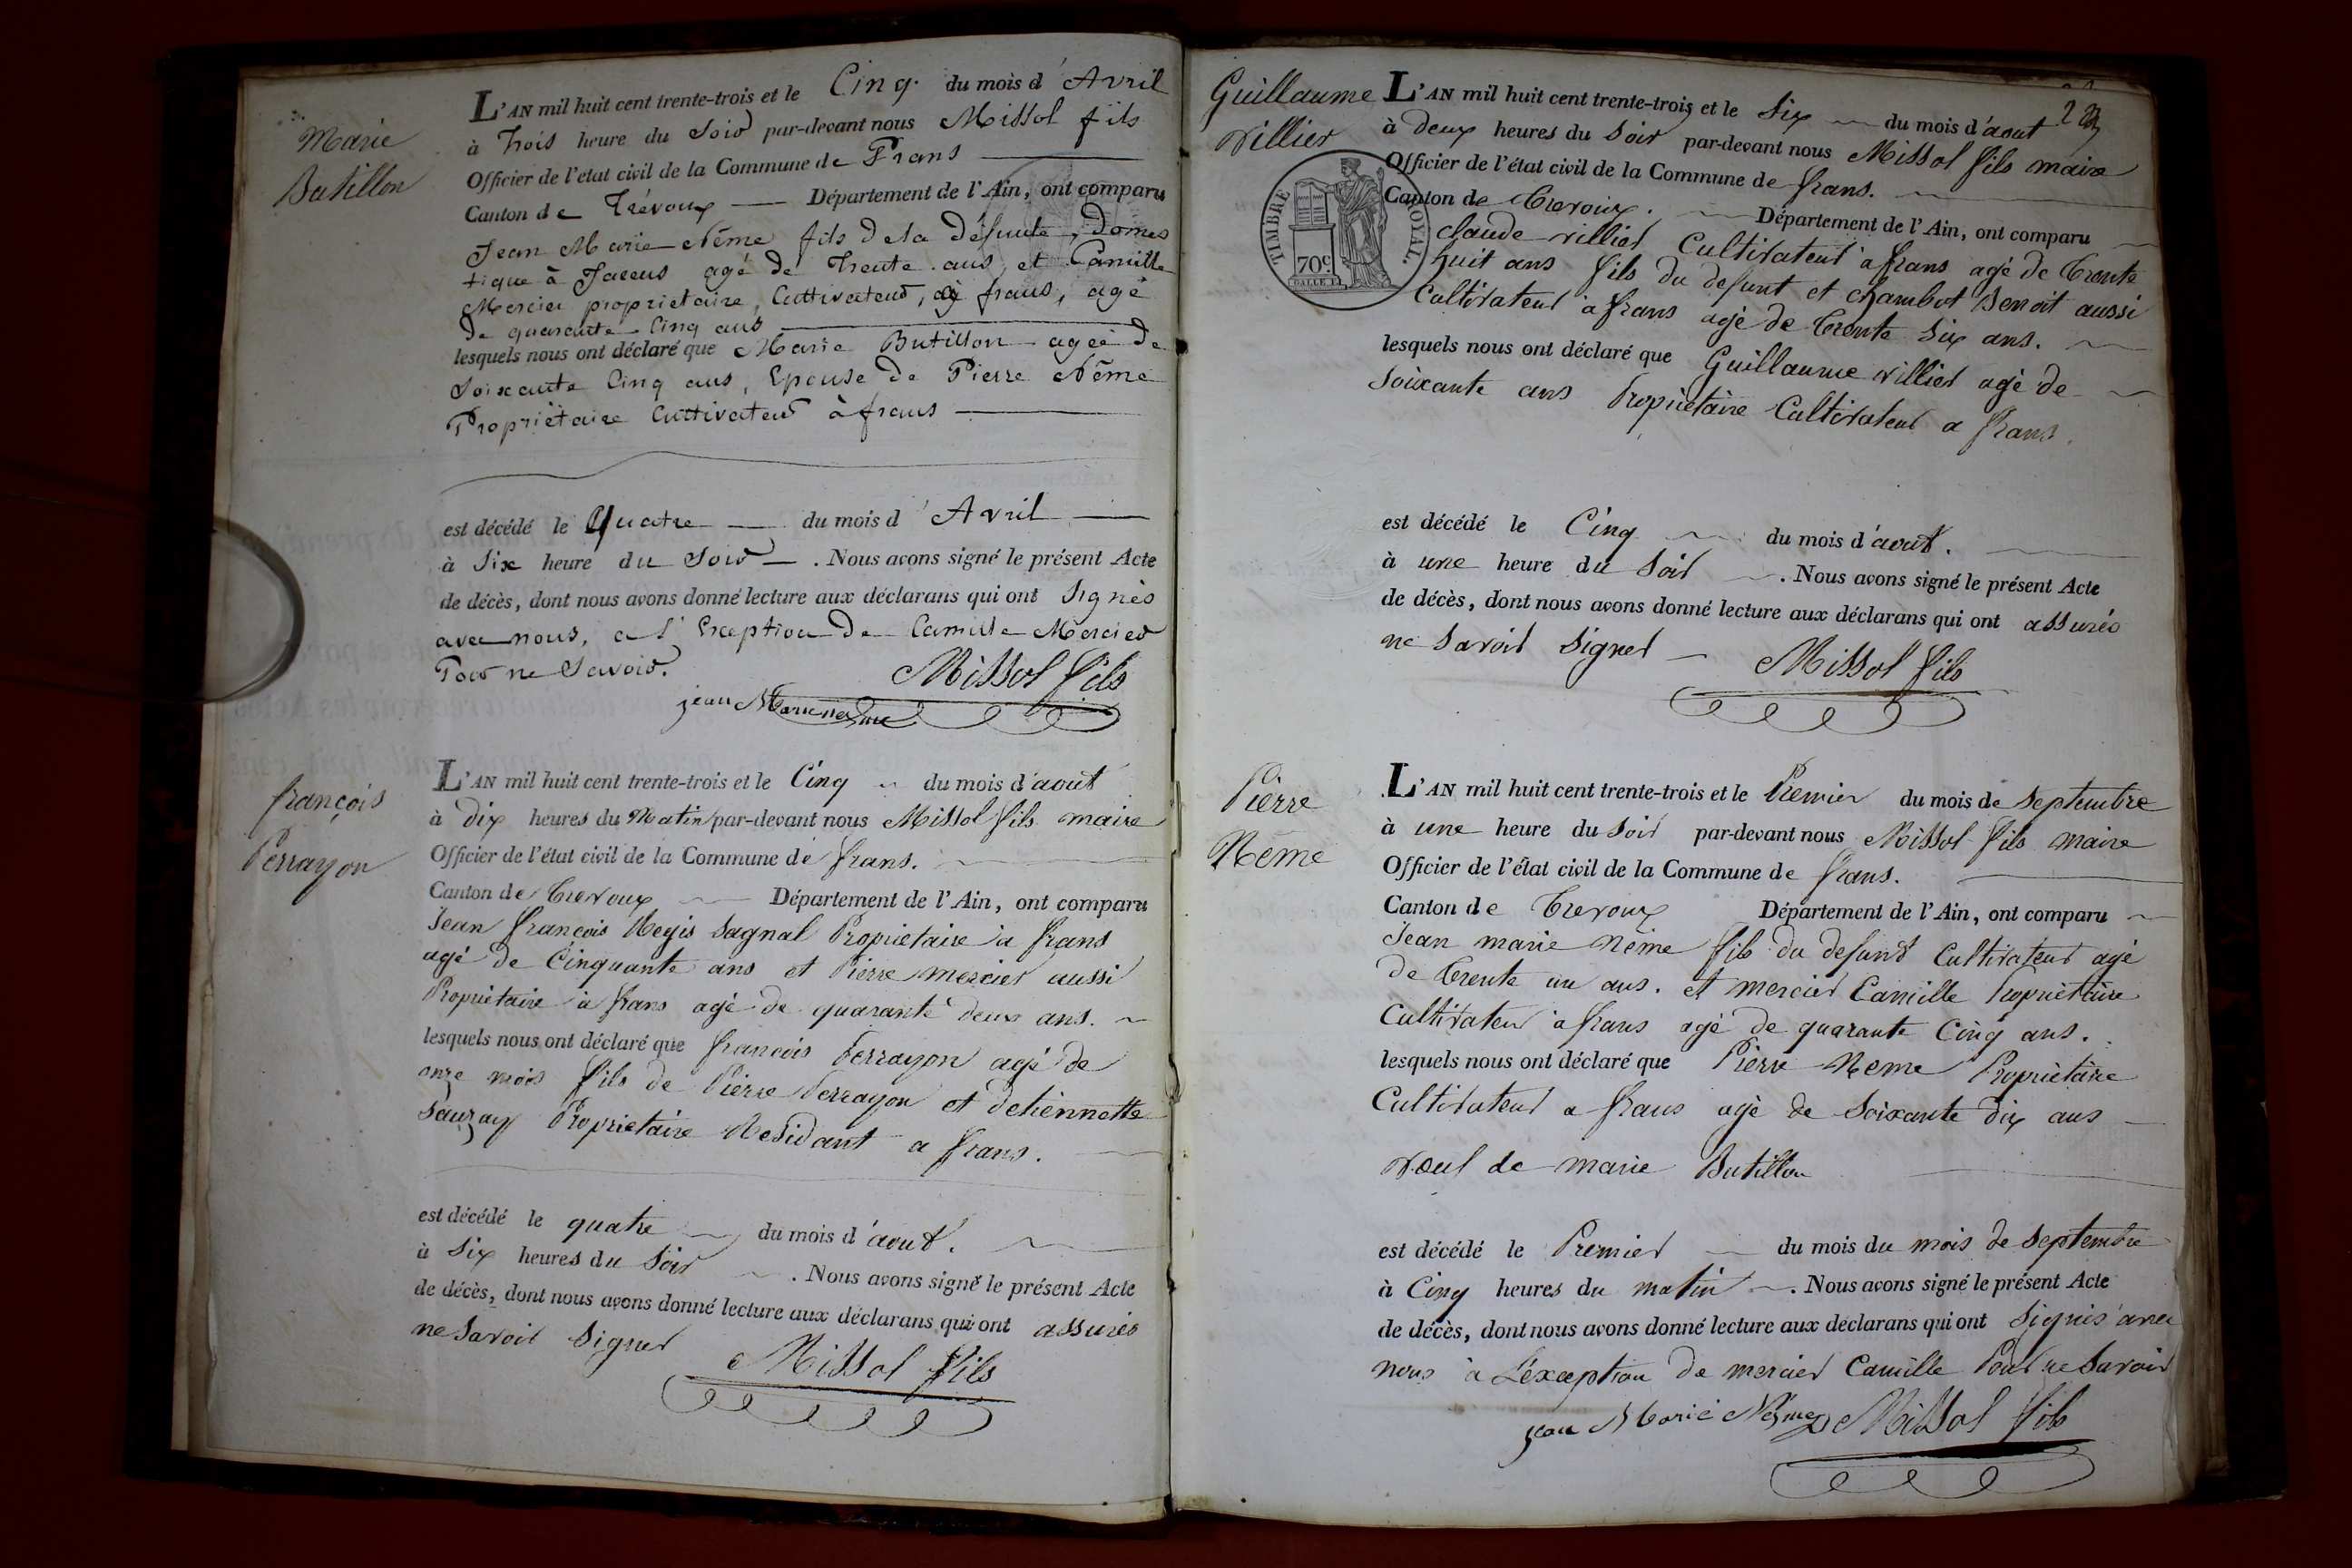 Marie
Butillon
L'AN mil huit cent trente-trois et le Cinq du mois d'Avril
à Trois heure du Soir par-devant nous Missol fils
Officier de l'etat civil de la Commune de Frans
Canton de Trévoux Département de l'Ain, ont comparu
Jean Marie Nême fils de la défunte, domes
tique à Jaceus agé de Trente ans, et Camille
Mercier proprietaire, Cultivateur, à frans, agé
de quarante Cinq ans
lesquels nous ont déclaré que Marie Butillon agée de
Soixante Cinq ans, Epouse de Pierre Nême
Propriétaire Cultivateur à frans
est décédé le Quatre du mois d'Avril
à Six heure du Soir. Nous avons signé le présent Acte
de décès, dont nous avons donné lecture aux déclarans qui ont Signès
avec nous, a l'Exception de Camille Mercier
Pour ne Savoir.
Missol fils
jean Marie nesme
françois
Perrayon
L'AN mil huit cent trente-trois et le Cinq du mois d'aout
à dix heures du Matin par-devant nous Missol fils maire
Officier de l'état civil de la Commune de frans.
Canton de Trevoux Département de l'Ain, ont comparu
Jean françois Regis Sagnal Proprietaire à frans
agé de Cinquante ans et Pierre mercier aussi
Propriétaire à frans agé de quarante deux ans.
lesquels nous ont déclaré que françois Perrayon agé de
onze mois fils de Pierre Perrayon et detiennette
Sauzay Propriétaire Residant a frans.
est décédé le quatre du mois d'aout.
à Six heures du Soir. Nous avons signé le présent Acte
de décès, dont nous avons donné lecture aux déclarans qui ont assurés
ne Savoir Signer
Missol fils
Guillaume
villier
23
TIMBRE ROYAL.
70c
DALLE
L'AN mil huit cent trente-trois et le Six du mois d'aout
à deux heures du Soir par-devant nous Missol fils maire
Officier de l'état civil de la Commune de frans.
Canton de Trevoux. Département de l'Ain, ont comparu
claude villier Cultivateur à frans agé de trente
huit ans fils du defunt et chambot Benoit aussi
Cultivateur à frans agé de trente Six ans.
lesquels nous ont déclaré que Guillaume villier agé de
Soixante ans Propriétaire Cultivateur a frans.
est décédé le Cinq du mois d'aout.
à une heure du Soir. Nous avons signé le présent Acte
de décès, dont nous avons donné lecture aux déclarans qui ont assurés
ne Savoir Signer
Missol fils
Pierre
Nême
L'AN mil huit cent trente-trois et le Premier du mois de Septembre
à une heure du Soir par-devant nous Missol fils maire
Officier de l'état civil de la Commune de frans.
Canton de Trevoux Département de l'Ain, ont comparu
Jean marie Nême fils du defunt Cultivateur agé
de trente un ans. et mercier Camille Propriétaire
Cultivateur à frans agé de quarante Cinq ans.
lesquels nous ont déclaré que Pierre Neme Propriètaire
Cultivateur a frans agé de Soixante dix ans
veuf de marie Butillon
est décédé le Premier du mois du mois de Septembre
à Cinq heures du matin. Nous avons signé le présent Acte
de décès, dont nous avons donné lecture aux déclarans qui ont Signés avec
nous à L'éxception de mercier Camille Pour ne Savoir
jean Marie Nesme Missol fils